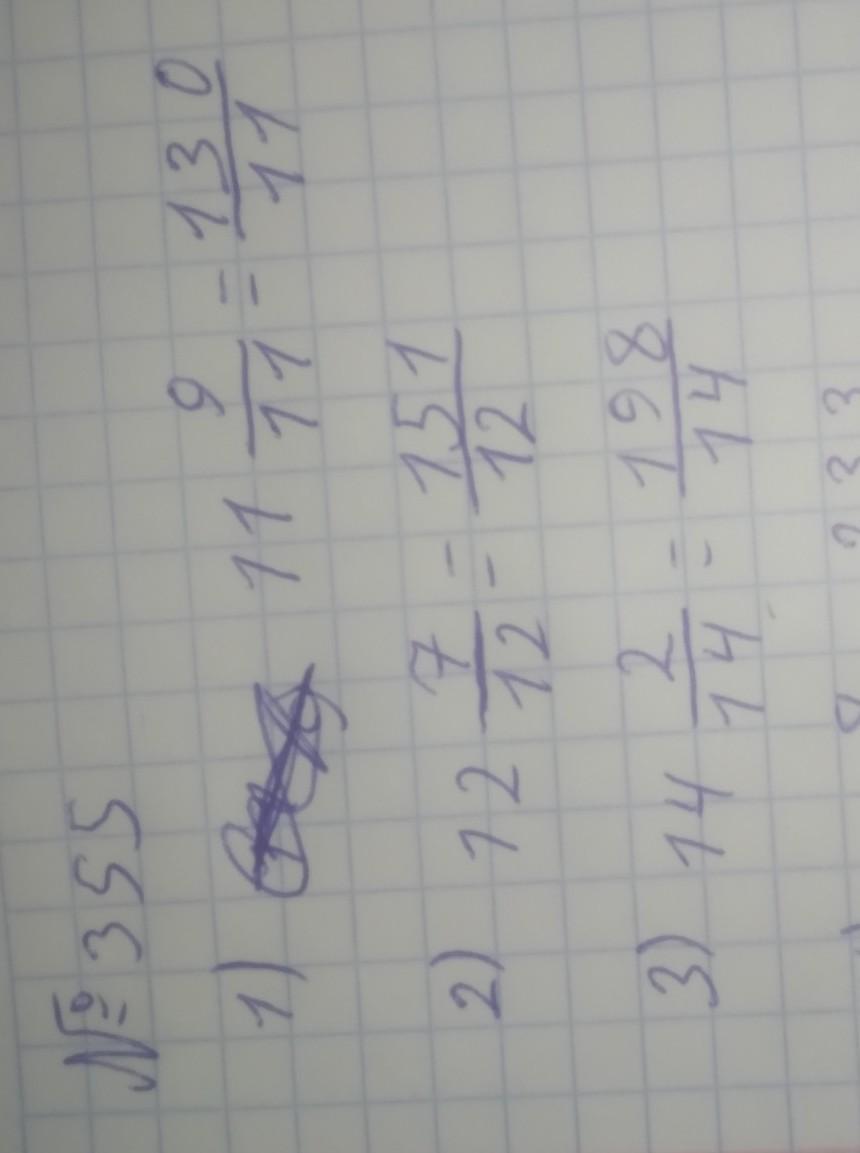 №355
1) 11 9/11 = 130/11
2) 12 7/12 = 151/12
3) 14 2/14 = 198/14